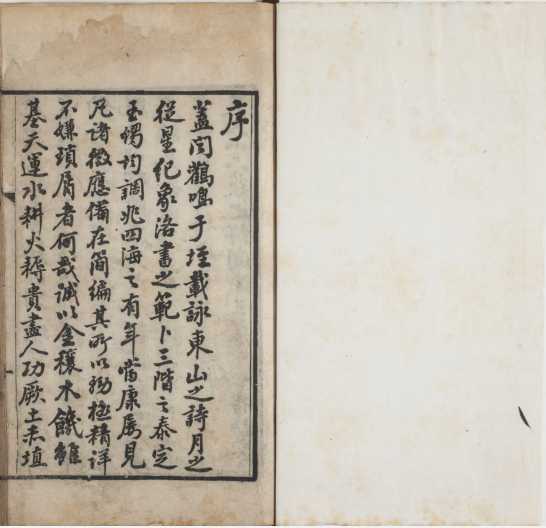 序
蓋聞鸛鳴于垤載詠東山之詩月之
從星紀象洛書之範卜三階之泰定
玉燭均調兆四海之有年當康屢見
凡諸徵應備在簡編其所以極精詳
不嫌瑣屑者何哉誠以金穰水饑雖
基天運水耕火耨貴盡人功厥土赤埴